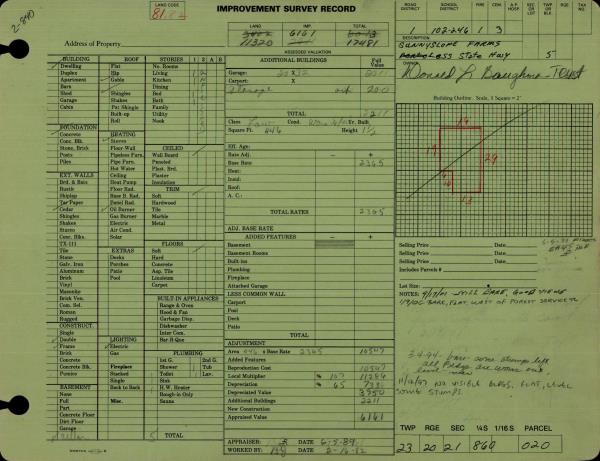 2-840
LAND CODE
81
IMPROVEMENT SURVEY RECORD
LAND IMP. TOTAL
6161
11320 17481
ASSESSED VALUATION
Address of Property
ROAD DISTRICT
SCHOOL DISTRICT
CEM.
A.P. HOSP.
SEC OR LOT
TWP OR BLK
RGE
TAX NO.
102-246 1 3
DESCRIPTION
SUNNYSLOPE FARMS
Less State Hwy 5
Donald L Baughman Trust
BUILDING ROOF STORIES 1 2 A B
Dwelling Flat No. Rooms
Duplex Hip Living
Apartment Gable Kitchen
Barn Dining
Shed Shingles Bed
Garage Shakes Bath
Cabin Pat. Shingle Family
Built-up Utility
Roll Nook
FOUNDATION
Concrete HEATING
Conc. Blk. Stoves
Stone, Brick Floor-Wall CEILED
Posts Pipeless Furn. Wall Board
Piles Pipe Furn. Paneled
Hot Water Plast. Brd.
EXT. WALLS Ceiling Plaster
Brd. & Bats Heat Pump Insulation
Rustic Floor Rad. TRIM
Shiplap Base B. Rad. Soft
Tar Paper Panel Rad. Hardwood
Cedar Oil Burner Tile
Shingles Gas Burner Marble
Shakes Electric Metal
Stucco Air Cond.
Conc. Blks. Solar
TX-111 FLOORS
Tile EXTRAS Soft
Stone Decks Hard
Galv. Iron Porches Concrete
Aluminum Patio Asp. Tile
Brick Pool Linoleum
Vinyl Carpet
Masonite
Brick Ven. BUILT-IN APPLIANCES
Com. Sel. Range & Oven
Roman Hood & Fan
Rugged Garbage Disp.
CONSTRUCT. Dishwasher
Single Inter Com.
Double LIGHTING Bar-B-Que
Frame Electric
Brick Gas PLUMBING
1st G. 2nd G.
Fireplace Shower Tub
Stacked Toilet Lav.
Single Sink
BASEMENT Back to Back H.W. Heater
Full Misc. Rough-in Only
Part Sauna
Concrete Floor
Dirt Floor
Garage
TOTAL
ADDITIONAL BUILDINGS
Garage: 20 X 32 2011
Carport: X
Storage 200
TOTAL 2211
Class Low Cond. Yr. Built
Square Ft. 446 Height 1 1/2
Eff. Age:
Rate Adj. − +
Base Rate 2365
Heat:
Insul:
Roof:
A. C.:
TOTAL RATES 2365
ADJ. BASE RATE
ADDED FEATURES − +
Basement
Basement Rooms
Built-ins
Plumbing
Fireplace
Attached Garage
LESS COMMON WALL
Carport
Pool
Deck
Patio
TOTAL
ADJUSTMENT
Area 446 x Base Rate 2365 10547
Added Features
Reproduction Cost 10547
Local Multiplier % 107
Depreciation % 65
Depreciated Value 3950
Additional Buildings 2211
New Construction
Appraised Value 6161
APPRAISER: DATE 6-5-89
WORKED BY: DATE 2-16-82
Building Outline. Scale, 1 Square = 2'
19
19
29
10
13
Selling Price Date
Selling Price Cem.
Selling Price Date
Includes Parcels #
Lot Size:
NOTES: 9/17/01 STILL BARE, GOOD VIEWS
1/9/06 BARE, FLAT, WEST OF FOREST SERVICE
3-4-94 bare some stumps left
all bldgs are worn out
11/13/97 NO VISIBLE BLDGS, FLAT, LEVEL
SOME STUMPS
TWP RGE SEC ¼S 1/16 S PARCEL
23 20 21 860 020